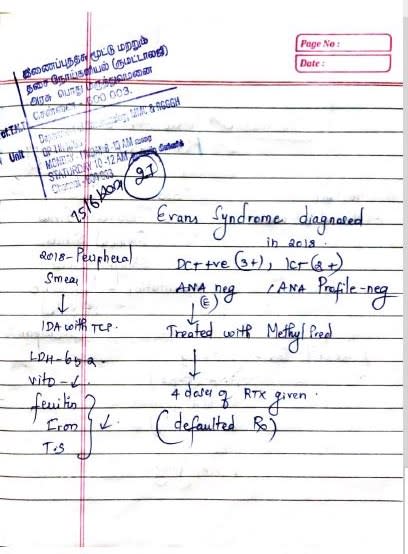 Page No :
Date :
இணைப்புத்தசை மூட்டு மற்றும்
தசை நோய்களியல் (ருமட்டாலஜி)
அரசு பொது மருத்துவமனை
சென்னை - 600 003.
MMC & RGGGH
Unit
15/6/2021
27
Evans Syndrome diagnosed
in 2018.
2018- Peripheral
Smear
↓
IDA with TCP.
LDH-
vitD-↓
ferritin
Iron
T.S
} ↓.
DCT +ve (3+), ICT (2+)
ANA neg , ANA Profile-neg
(E)
↓
Treated with Methyl Pred
↓
4 doses of RTX given.
(defaulted Rx)